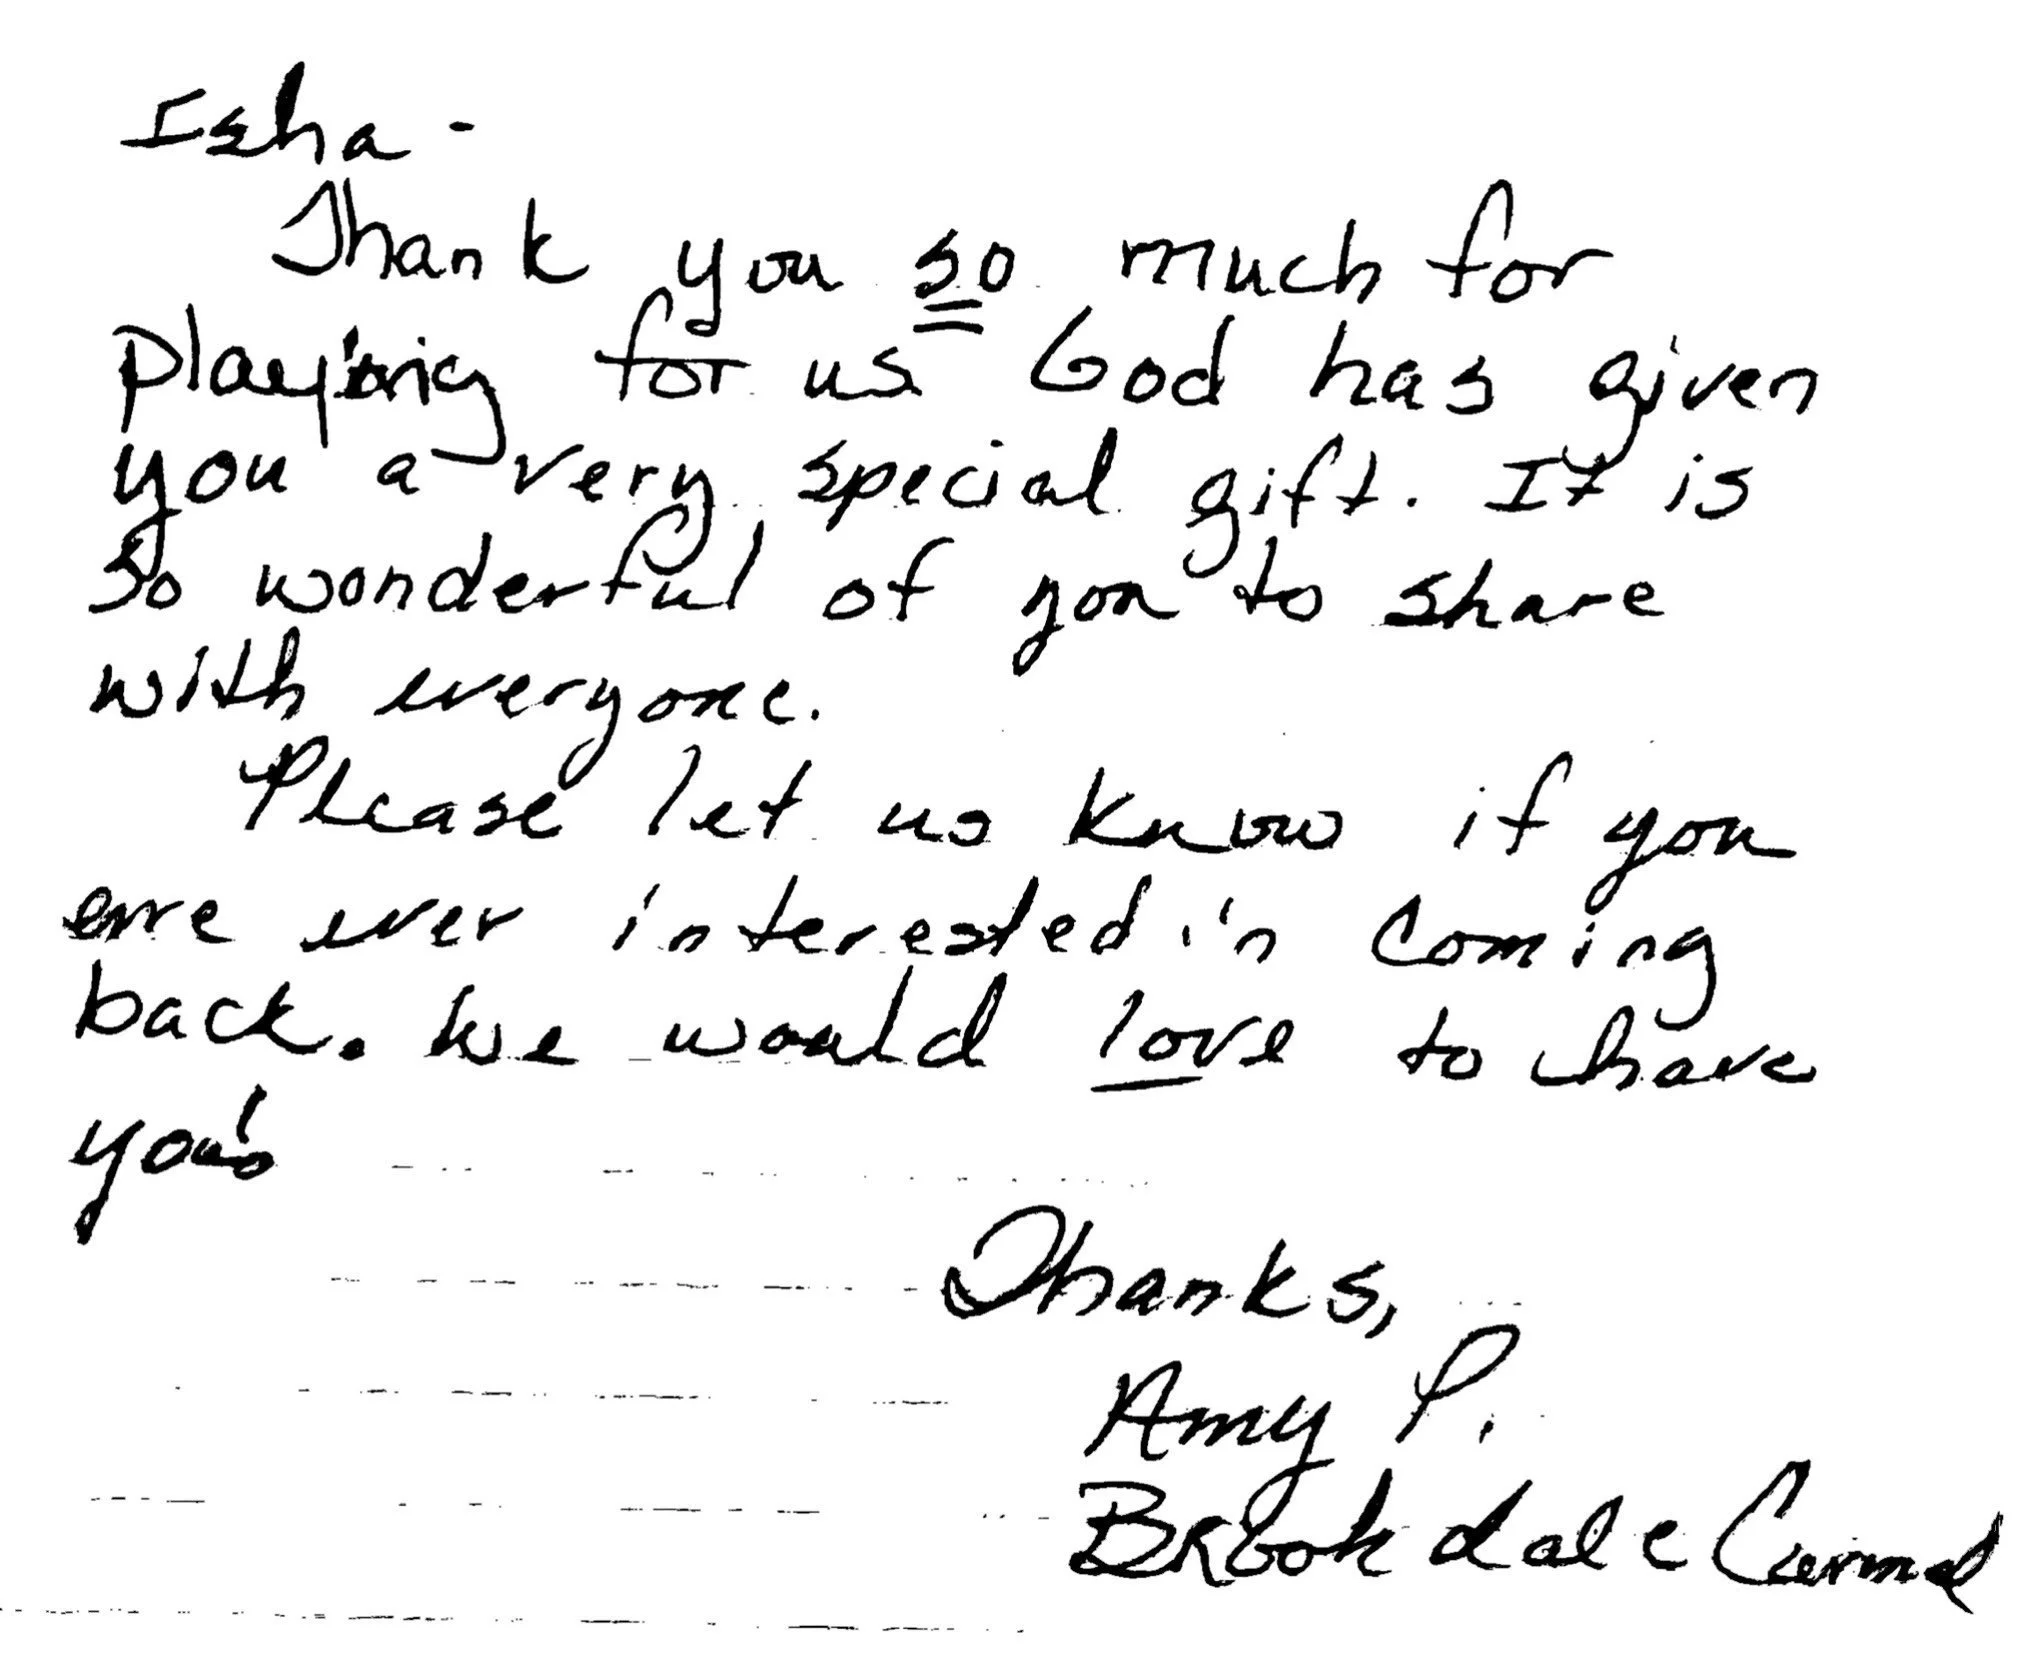 Isha -
Thank you so much for
playing for us God has given
you a very special gift. It is
so wonderful of you to share
with everyone.
Please let us know if you
are ever interested in coming
back. We would love to have
you!
Thanks,
Amy P.
Brookdale Carmel